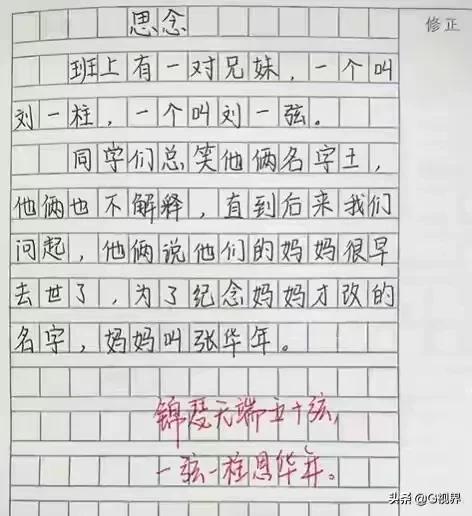 思念
修正
班上有一对兄妹，一个叫
刘一柱，一个叫刘一弦。
同学们总笑他俩名字土，
他俩也不解释，直到后来我们
问起，他俩说他们的妈妈很早
去世了，为了纪念妈妈才改的
名字，妈妈叫张华年。
锦瑟无端五十弦，
一弦一柱思华年。
头条@G视界